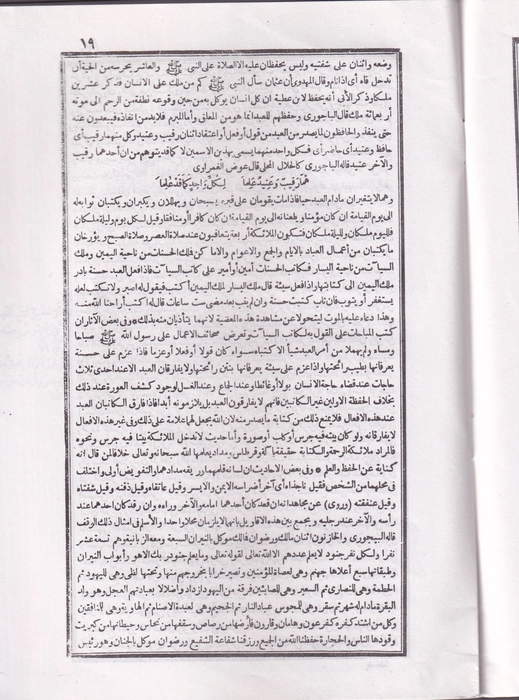 ١٩
وضعه واثنان على شفتيه وليس يحفظان عليه الا الصلاة على النبي ﷺ والعاشر يحرسه من الحية أن
تدخل فاه أى اذا نام وقال المهدوى أن عثمان سأل النبي ﷺ كم من ملك على الانسان فذكر عشرين
ملكا وذكر الأبى أنه يحفظ لابن عطية ان كل انسان يوكل به من حين وقوعه نطفة من الرحم الى موته
أربعمائة ملك قال الباجورى وحفظهم للعبد انما هو من المعلق وأما المبرم فلابد من انفاذه فيبعدون عنه
حتى ينفذ والحافظون لما يصدر من العبد من قول أو فعل أو اعتقاد اثنان رقيب وعتيد وكل منهما رقيب أى
حافظ وعتيد أى حاضر أى فكل واحد منهما يسمى بهذين الاسمين لا كما قد يتوهم من ان أحدهما رقيب
والآخر عتيد قاله الباجورى كالجلال المحلى قال عوض الغمراوى
هما رقيب وعتيد علما لكل واحد كما قد علما
وهما لا يتغيران مادام العبد حيا فاذا مات يقومان على قبره يسبحان ويهللان ويكبران ويكتبان ثوابه له
الى يوم القيامة ان كان مؤمنا ويلعنانه الى يوم القيامة ان كان كافرا أو منافقا وقيل لكل يوم وليلة ملكان
فلليوم ملكان ولليلة ملكان فتكون الملائكة أربعة يتعاقبون عند صلاة العصر وصلاة الصبح ويؤرخان
ما يكتبان من أعمال العبد بالايام والجمع والاعوام والاماكن فملك الحسنات من ناحية اليمين وملك
السيآت من ناحية اليسار فكاتب الحسنات أمين أو أمير على كاتب السيآت فاذا فعل العبد حسنة بادر
ملك اليمين الى كتابتها واذا فعل سيئة قال ملك اليسار لملك اليمين أأكتب فيقول له اصبر ولا تكتب لعله
يستغفر أو يتوب فان تاب كتبت حسنة وان لم يتب بعد مضى ست ساعات قال له اكتب أراحنا الله منه
وهذا دعاء عليه بالموت ليتحولا عن مشاهدة هذه المعصية لانهما يتأذيان منه بذلك وفى بعض الآثار ان
كتب المباحات على القول به لكاتب السيآت وتعرض صحائف الاعمال على رسول الله ﷺ صباحا
ومساء ولم يهملا من أمر العبد شيأ الا كتباه سواء كان قولا أو فعلا أو عزما فاذا عزم على حسنة
يعرفانها بطيب رائحتها واذا عزم على سيئة يعرفانها بنتن رائحتها ولا يفارقان العبد الا عند احدى ثلاث
حاجات عند قضاء حاجة الانسان بولا أو غائطا وعند الجماع وعند الغسل لوجود كشف العورة عند ذلك
بخلاف الحفظة الاولين غير الكاتبين فانهم لا يفارقون العبد بل يلازمونه أبدا فاذا فارق الكاتبان العبد
عند هذه الافعال فلا يمنع ذلك من كتابة ما يصدر منه لان الله يجعل لهما علامة على ذلك وفى غير هذه الافعال
لا يفارقانه ولو كان بيته فيه جرس أو كلب أو صورة وأما حديث لا تدخل الملائكة بيتا فيه جرس ونحوه
فالمراد ملائكة الرحمة والكتابة حقيقة بآلة وقرطاس ومداد يعلمها الله سبحانه وتعالى خلافا لمن قال انه
كناية عن الحفظ والعلم وفى بعض الاحاديث ان لسانه قلمهما وريقه مدادهما والتفويض أولى واختلف
فى محلهما من الشخص فقيل ناجذاه أى آخر أضراسه الايمن والايسر وقيل عاتقاه وقيل ذقنه وقيل شفتاه
وقيل عنفقته (وروى) عن مجاهد انه ان قعد كان أحدهما امامه والآخر وراءه وان رقد كان أحدهما عند
رأسه والآخر عند رجليه ويجمع بين هذه الاقاويل بانهما لا يلزمان محلا واحدا والأسلم فى امثال ذلك الوقف
قاله البيجورى والخازنون اثنان ملك ورضوان فملك موكل بالنيران السبعة ومعه الزبانية وهم تسعة عشر
نفرا ولكل نفر جنود لا يعلم عددهم الا الله تعالى لقوله تعالى وما يعلم جنود ربك الا هو وأبواب النيران
وطبقاتها سبع أعلاها جهنم وهى لعصاة المؤمنين وتصير خرابا بخروجهم منها وتحتها لظى وهى لليهود ثم
الحطمة وهى للنصارى ثم السعير وهى للصابئين فرقة من اليهود ازداد واضلالا بعبادتهم العجل وهو ولد
البقرة مادام له شهر ثم سقر وهى للمجوس عباد النار ثم الجحيم وهى لعبدة الاصنام ثم الهاوية وهى للمنافقين
وكل من اشتد كفره كفرعون وهامان وقارون فأرضها من رصاص وسقفها من نحاس وحيطانها من كبريت
وقودها الناس والحجارة حفظنا الله من الجميع ورزقنا شفاعة الشفيع ورضوان موكل بالجنان وهو رئيس